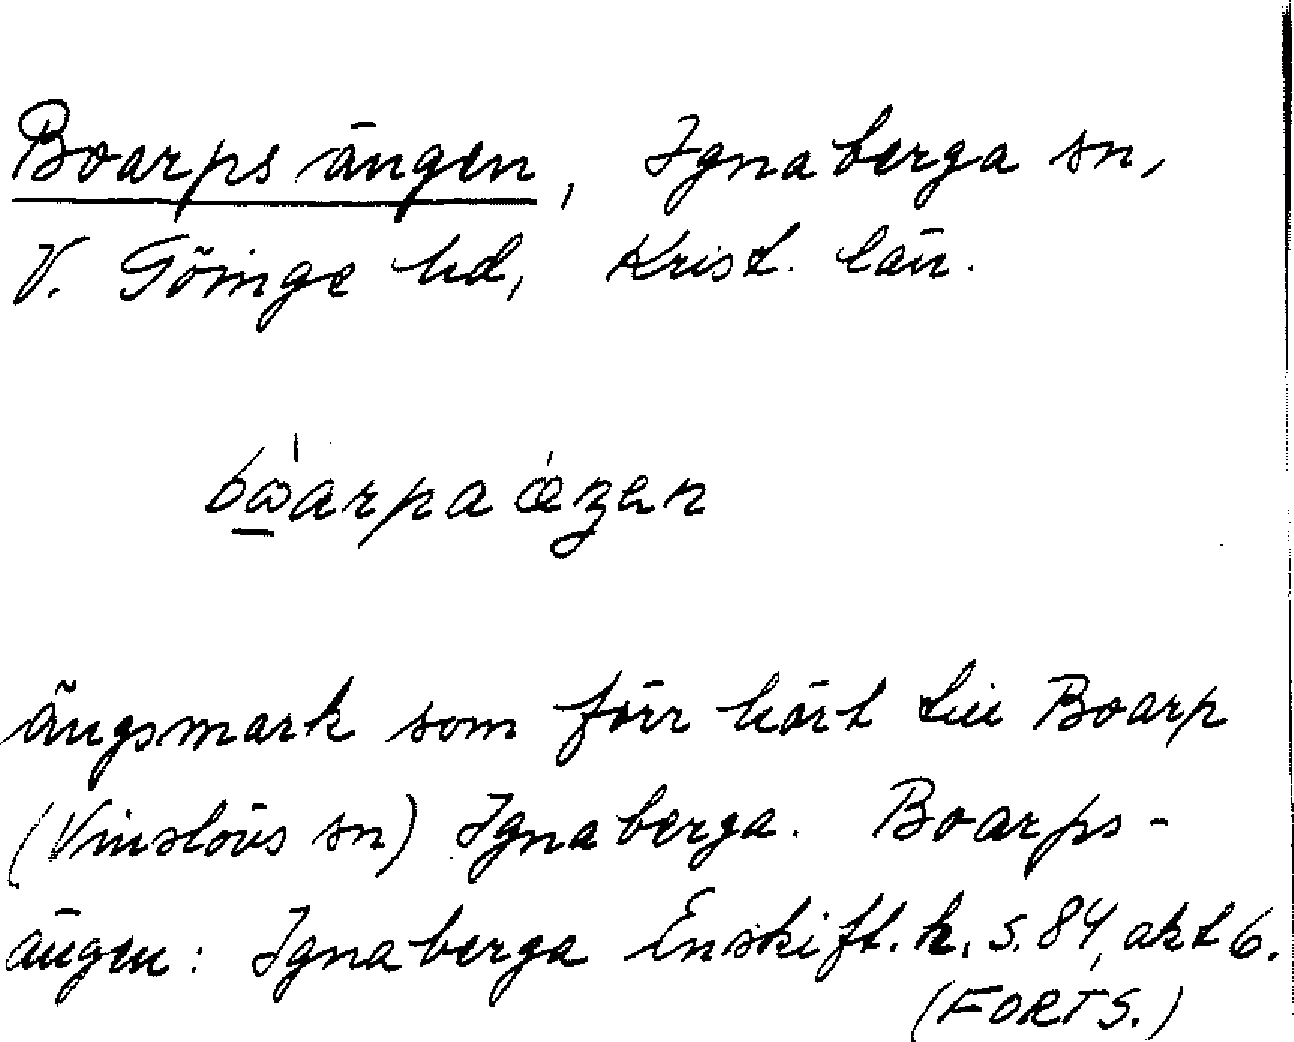 Boarps ängen, Ignaberga sn,
V. Göinge hd, Krist. län.
ängsmark som förr hört till Boarp
(Vinslövs sn) Ignaberga. Boarps-
ängen: Ignaberga Enskift. k. s. 84, akt 6.
(FORTS.)